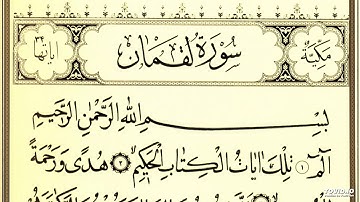 مكية
سورة لقمان
اياتها ٣٤
بِسْمِ اللهِ الرَّحْمٰنِ الرَّحِيمِ
الٓمٓ ۝١ تِلْكَ اٰيَاتُ الْكِتَابِ الْحَكِيمِ ۝٢ هُدًى وَرَحْمَةً